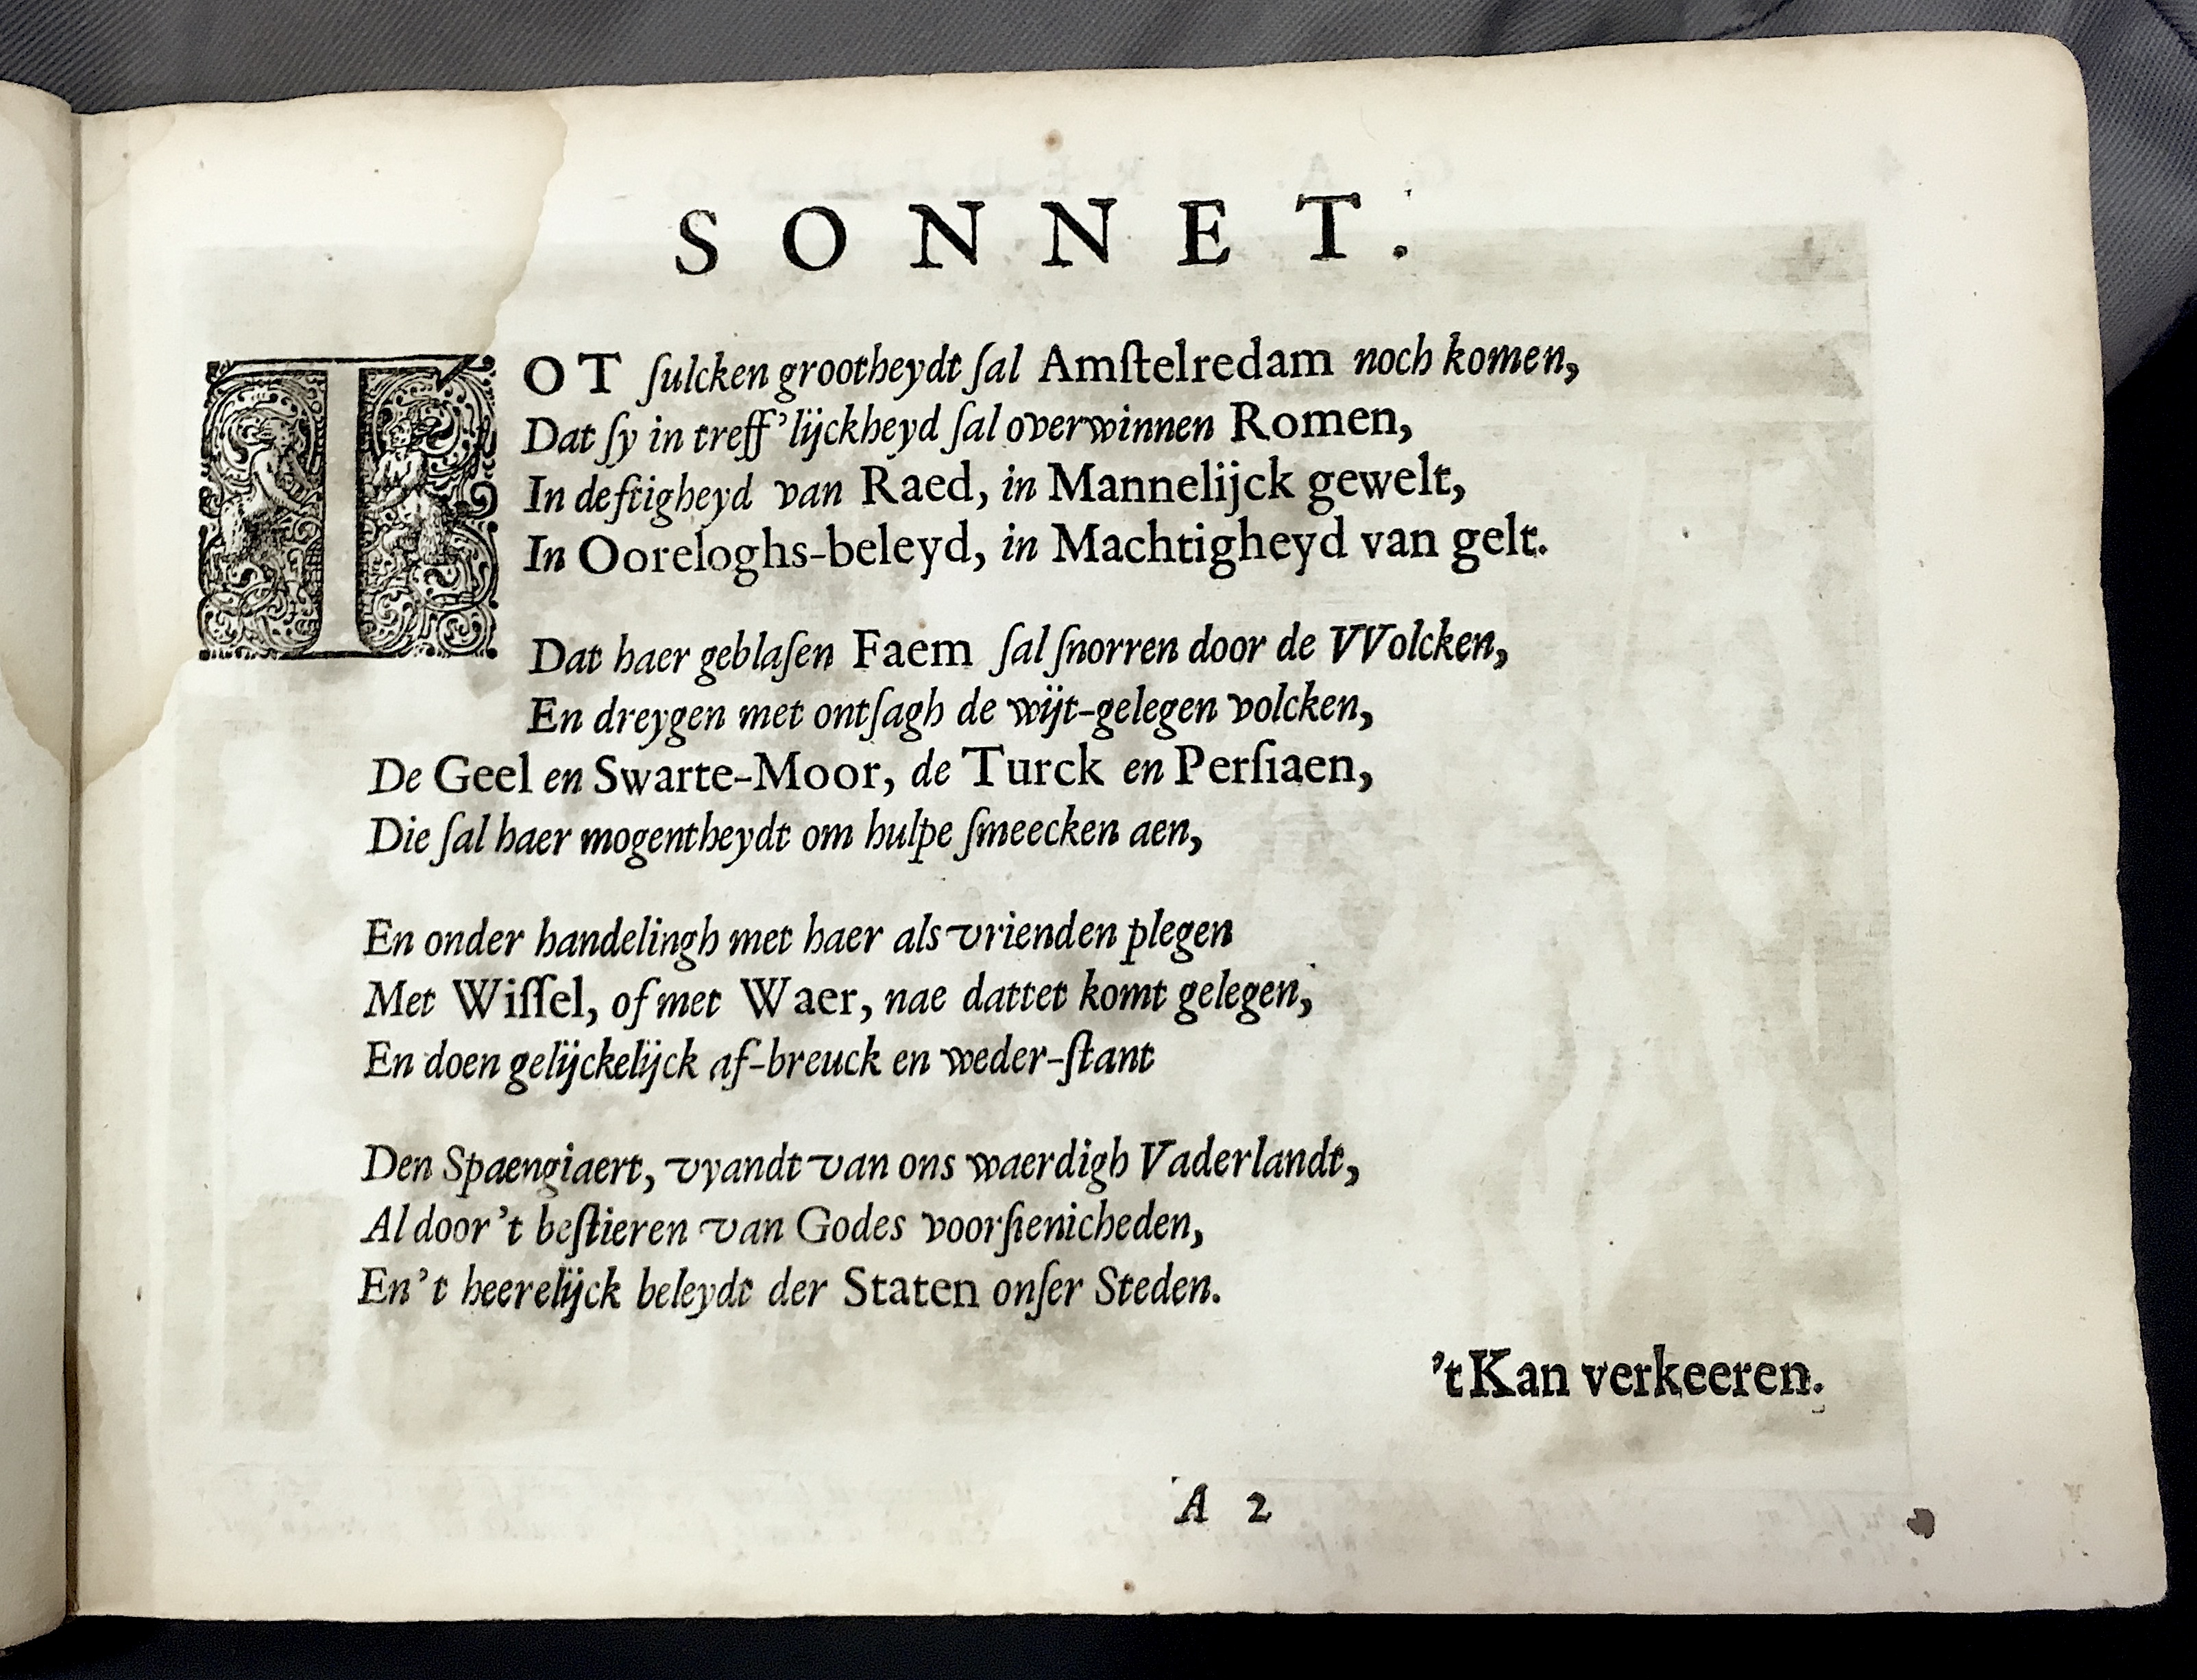 SONNET.
TOT ſulcken grootheydt ſal Amſtelredam noch komen,
Dat ſy in treff'lijckheyd ſal overwinnen Romen,
In deftigheyd van Raed, in Mannelijck gewelt,
In Ooreloghs-beleyd, in Machtigheyd van gelt.
Dat haer geblaſen Faem ſal ſnorren door de VVolcken,
En dreygen met ontſagh de wijt-gelegen volcken,
De Geel en Swarte-Moor, de Turck en Perſiaen,
Die ſal haer mogentheydt om hulpe ſmeecken aen,
En onder handelingh met haer als vrienden plegen
Met Wiſſel, of met Waer, nae dattet komt gelegen,
En doen gelijckelijck af-breuck en weder-ſtant
Den Spaengiaert, vyandt van ons waerdigh Vaderlandt,
Al door't beſtieren van Godes voorſienicheden,
En't heerelijck beleydt der Staten onſer Steden.
't Kan verkeeren.
A 2